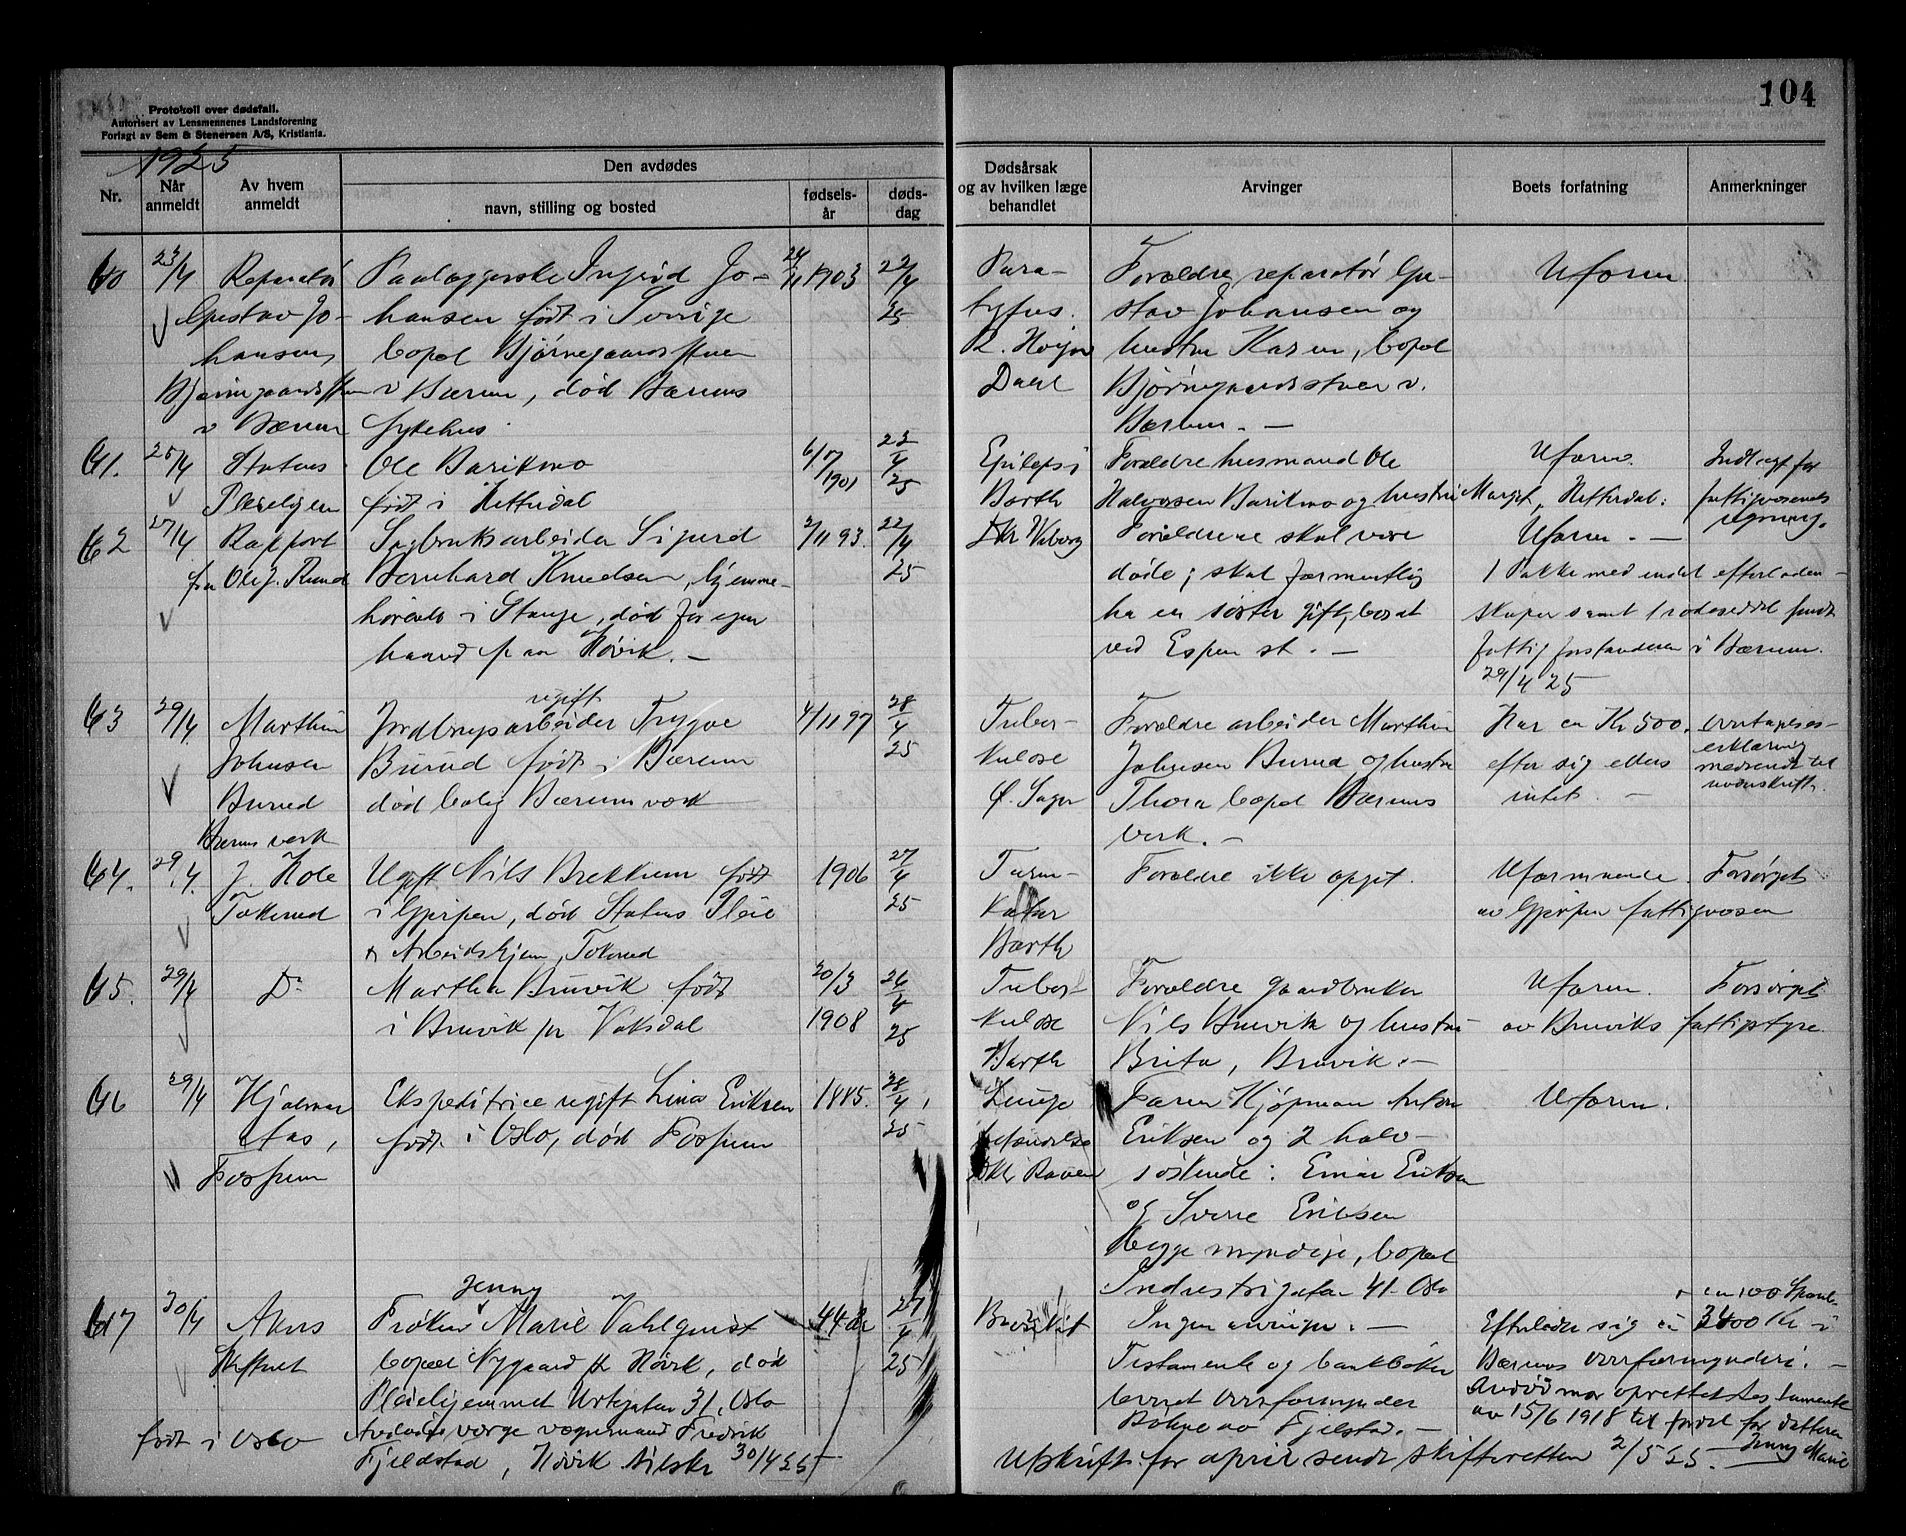 104
Protokoll over dødsfall.
Autorisert av Lensmennenes Landsforening
Forlagt av Sem & Stenersen A/S, Kristiania.
1925
Nr.
Når anmeldt
Av hvem anmeldt
Den avdødes
navn, stilling og bosted
fødsels-år
døds-dag
Dødsårsak og av hvilken læge behandlet
Arvinger
Boets forfatning
Anmerkninger
60 23/4 Reparatør
Gustav Jo-
hansen,
v Bærum
Ingrid Jo-
hansen født i Sverige
bopæl Bjørnegaardsstuen
v Bærum, død Bærums
sykehus
24/11 1903
22/4 25
Para-
tyfus.
Dahl
Forældre reparatør Gu-
stav Johansen og
hustru Karen, bopæl
Bjørnegaardsstuen v.
Bærum. —
Uform.
61. 25/4 Statens
Pleiehjem
Ole Barikmo
født i Hitterdal
6/7 1901
23/4 25
Epilepsi
Barth
Forældre husmand Ole
Halvorsen Barikmo og hustru Margit, Hitterdal.
Uform.
Indlagt for
fattigvæsenets
regning.
62 27/4 Rapport
fra Ole J. Rund
Sagbruksarbeider Sigurd
Bernhard Knudsen, hjemme-
hørende i Stange, død for egen
haand paa Høvik. —
2/11 93.
22/4 25
Dr Wiborg
Forældrene skal være
døde; skal formentlig
ha en søster gift, bosat
ved Espen st. —
Uform. —
1 Pakke med endel efterladen-
skaper samt 1 sendt
fattigforstanderen i Bærum.
29/4 25
63 29/4. Marthin
Johnsen
Burud
Bærums verk
ugift
Jordbrugsarbeider Trygve
Burud født i Bærum
død bolig Bærums verk
4/11 97
28/4 25
Tuber-
kulose
Forældre arbeider Marthin
Johnsen Burud og hustru
Thora bopæl Bærums
verk. —
Har en Kr 500.
efter sig ellers
intet. —
overtagelses-
erklæring
medsendt til
underskrift.
64. 29/4. J. Hole
Tokerud
Ugift Nils Brekkem født
i Gjerpen, død Statens Pleie
& Arbeidshjem, Tokerud
1906
27/4 25
Tarm-
katar
Barth
Forældre ikke opgit.
Uformuende. Forsørget
av Gjerpen fattigvæsen
65. 29/4 Do
Martha Bruvik født
i Bruvik pr Vaksdal
20/3 1908
26/4 25
Tuber-
kulose
Barth
Forældre gaardbruker
Nils Bruvik og hustru
Brita, Bruvik. —
Uform. Forsørget
av Bruviks fattigstyre
66 29/4 Hjalmar
Aas,
Fossum
Ekspeditrice ugift Lina Eriksen
født i Oslo, død Fossum
1885.
28/4 25
Lunge
betændelse
Faren Kjøpman Anton
Eriksen og 2 halv-
søskende: Einar Eriksen
og Sverre Eriksen
begge myndige, bopæl
Industrigaten 41 Oslo
Uform.
67 30/4 Akers
Skifteret
født i Oslo
Jenny
Frøken Marie Vahlquist
bopæl Nygaard pr Høvik, død
Pleiehjemmet Urtegaten 31, Oslo
Avdødes værge vognmand Fredrik
Fjeldstad, Høvik tilskr 30/4 25
44 år
27/4 25
Ingen arvinger. —
Testamente og bankbøker
overformynder
av Fjelstad. —
Efterlader sig en 3400 Kr i
Bærums overformynderi. —
oprettet testamente
av 15/6 1918 til fordel for datteren
Jenny Marie
Utskrift for april sendt skifteretten 2/5 25. —